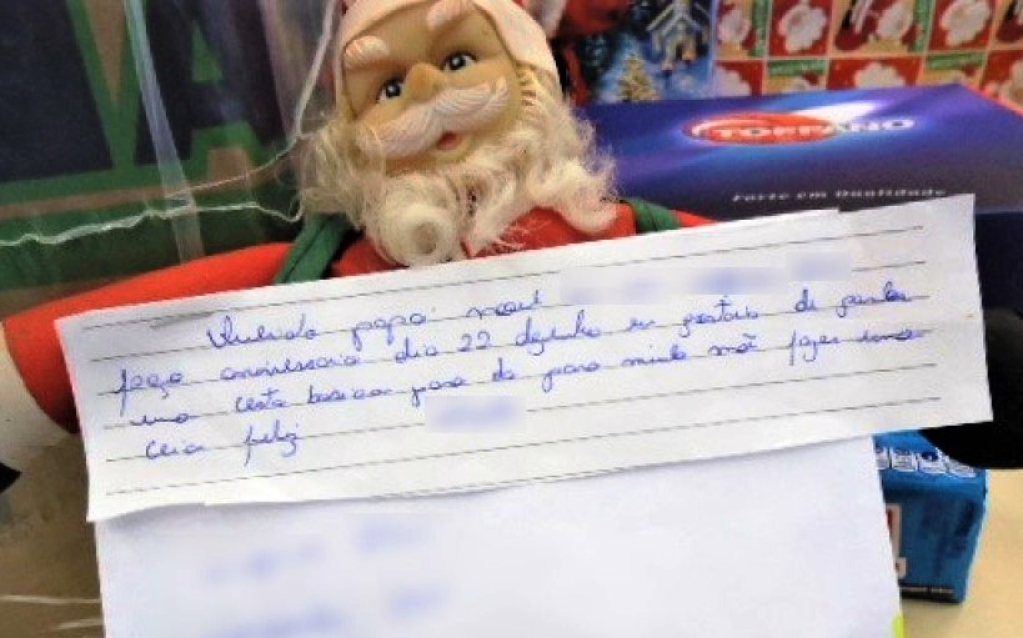 TORPANO
Forte em Qualidade
Querido papai noel
faço aniversario dia 22 dezenho eu gostaria de ganhar
uma cesta basica para da para minha mãe fazer uma
ceia feliz